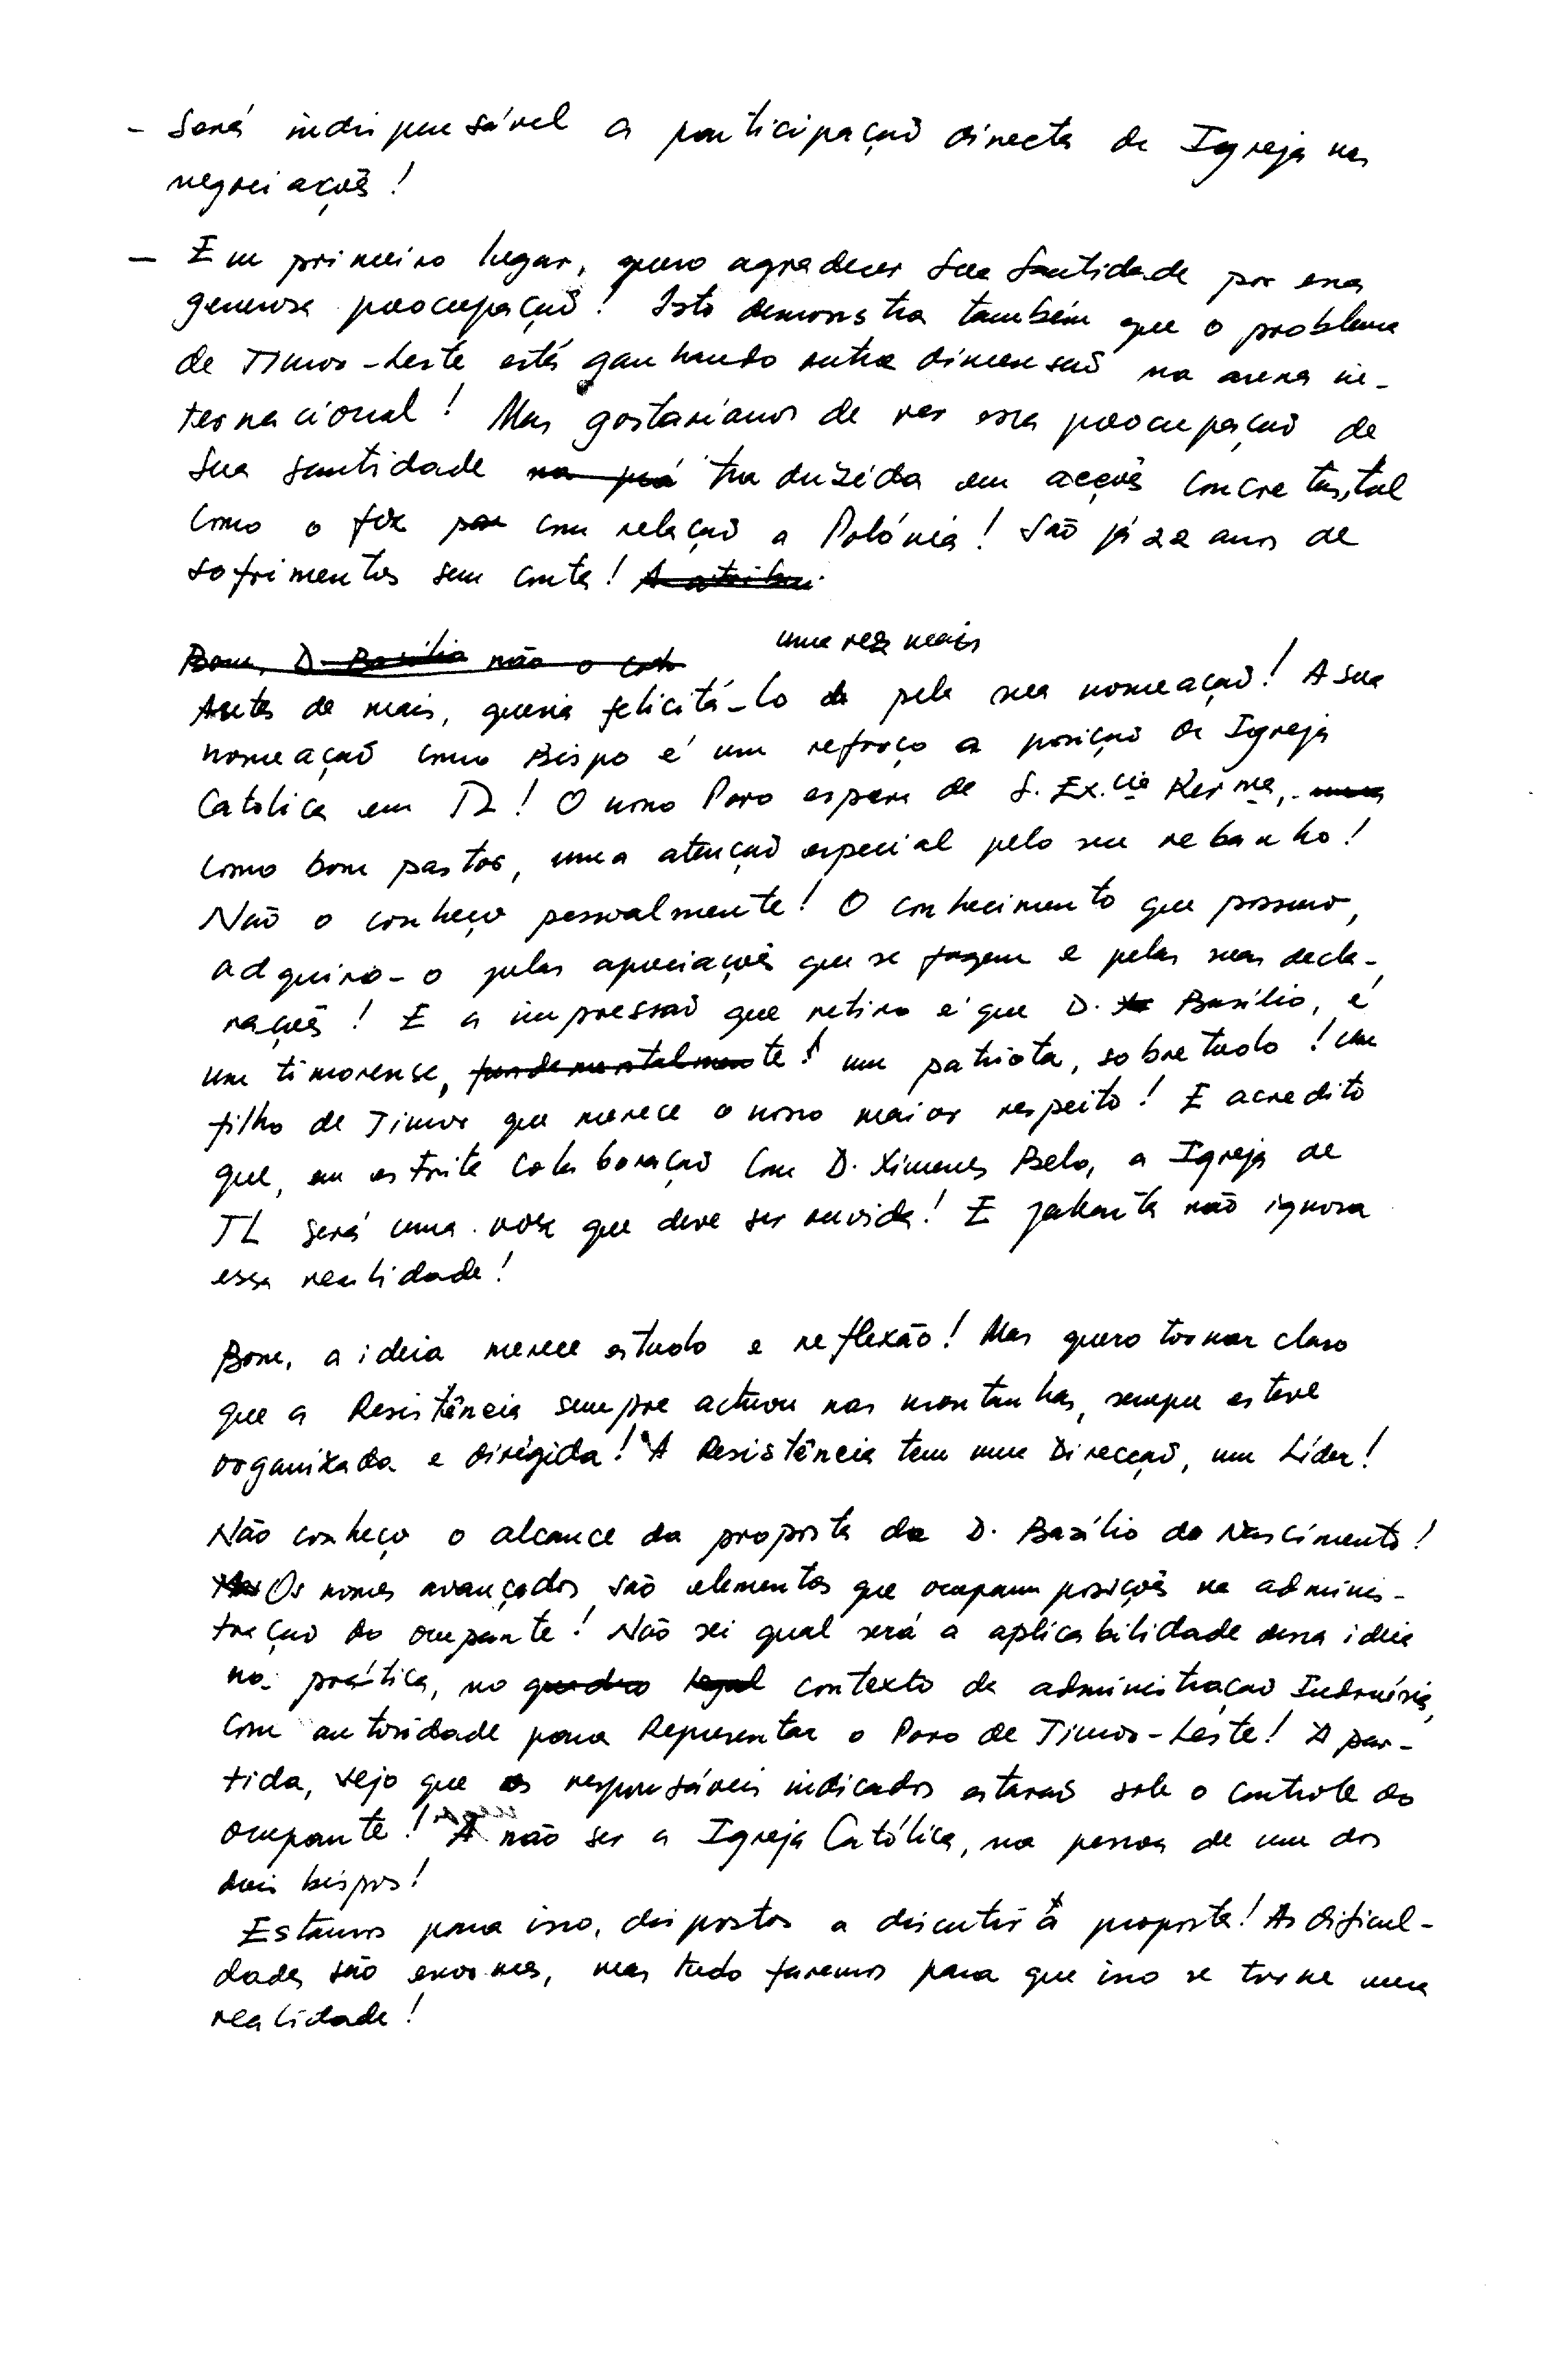 - Será indispensável a participação directa da Igreja nas
negociações!
- Em primeiro lugar, quero agradecer Sua Santidade por essa
generosa preocupação! Isto demonstra também que o problema
de Timor-Leste está ganhando outra dimensão na arena in-
ternacional! Mas gostaríamos de ver essa preocupação de
Sua Santidade na traduzida em acções concretas, tal
como o fez por com relação a Polónia! São já 22 anos de
sofrimentos sem conta! A atribui
Bom, D. Basílio não o conh
uma vez mais
Antes de mais, queria felicitá-lo pela sua nomeação! A sua
nomeação como Bispo é um reforço a posição da Igreja
Católica em TL! O nosso Povo espera de S. Ex.cia Rev.ma,
como bom pastor, uma atenção especial pelo seu rebanho!
Não o conheço pessoalmente! O conhecimento que possuo,
adquiro-o pelas apreciações que se fazem e pelas suas decla-
rações! E a impressão que retiro é que D. Basílio, é
um timorense, fundamentalmente! um patriota, sobretudo! um
filho de Timor que merece o nosso maior respeito! E acredito
que, em estrita colaboração com D. Ximenes Belo, a Igreja de
TL será uma voz que deve ser ouvida! E Jakarta não ignora
essa realidade!
Bom, a ideia merece estudo e reflexão! Mas quero tornar claro
que a Resistência sempre actuou nas montanhas, sempre esteve
organizada e dirigida! A Resistência tem uma Direcção, um Líder!
Não conheço o alcance da proposta de D. Basílio do Nascimento!
Mas Os nomes avançados são elementos que ocupam posições na adminis-
tração do ocupante! Não sei qual será a aplicabilidade dessa ideia
na prática, no quadro legal contexto da administração Indonésia,
com autoridade para Representar o Povo de Timor-Leste! A par-
tida, vejo que os responsáveis indicados estarão sob o controle do
ocupante! A não ser a Igreja Católica, na pessoa de um dos
dois bispos!
Estamos para isso, dispostos a discutir a proposta! As dificul-
dades são enormes, mas tudo faremos para que isso se torne uma
realidade!